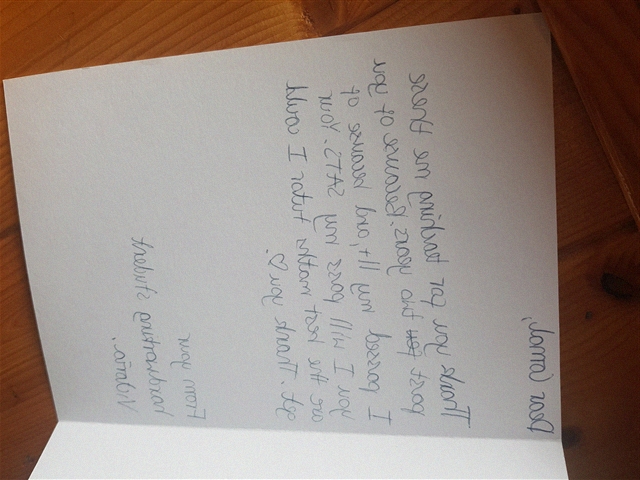 Dear
Thank you for teaching me these
past two years. Because of you
I passed my 11+, and because of
you I will pass my SATS. Your
are the best maths tutor I could
get. Thank you
From your
hardworking student